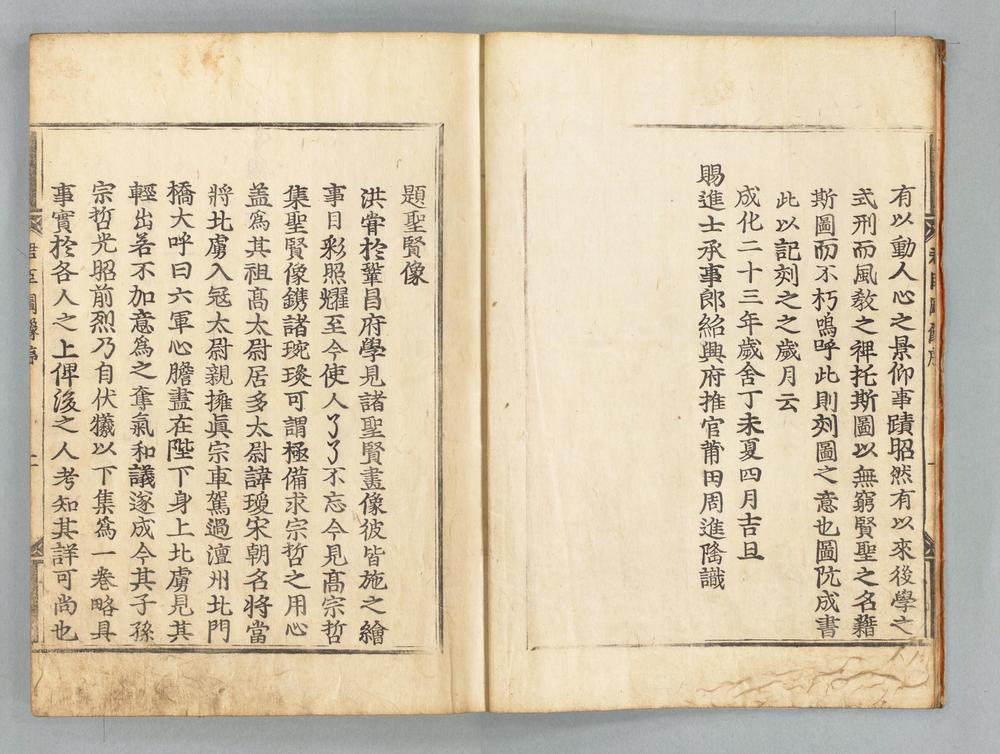 有以動人心之景仰事蹟昭然有以來後學之
式刑而風敎之裨托斯圖以無窮賢聖之名藉
斯圖而不朽嗚呼此則刻圖之意也圖旣成書
此以記刻之之歲月云
成化二十三年歲舍丁未夏四月吉旦
賜進士承事郎紹興府推官莆田周進隆識
題聖賢像
洪甞於鞏昌府學見諸聖賢畫像彼皆施之繪
事目彩照耀至今使人了了不忘今見髙宗哲
集聖賢像鐫諸琬琰可謂極備求宗哲之用心
盖爲其祖髙太尉居多太尉諱瓊宋朝名將當
將北虜入冦太尉親擁眞宗車駕過澶州北門
橋大呼曰六軍心膽盡在陛下身上北虜見其
輕出若不加意爲之奪氣和議遂成今其子孫
宗哲光昭前烈乃自伏犧以下集爲一卷略具
事實於各人之上俾後之人考知其詳可尚也